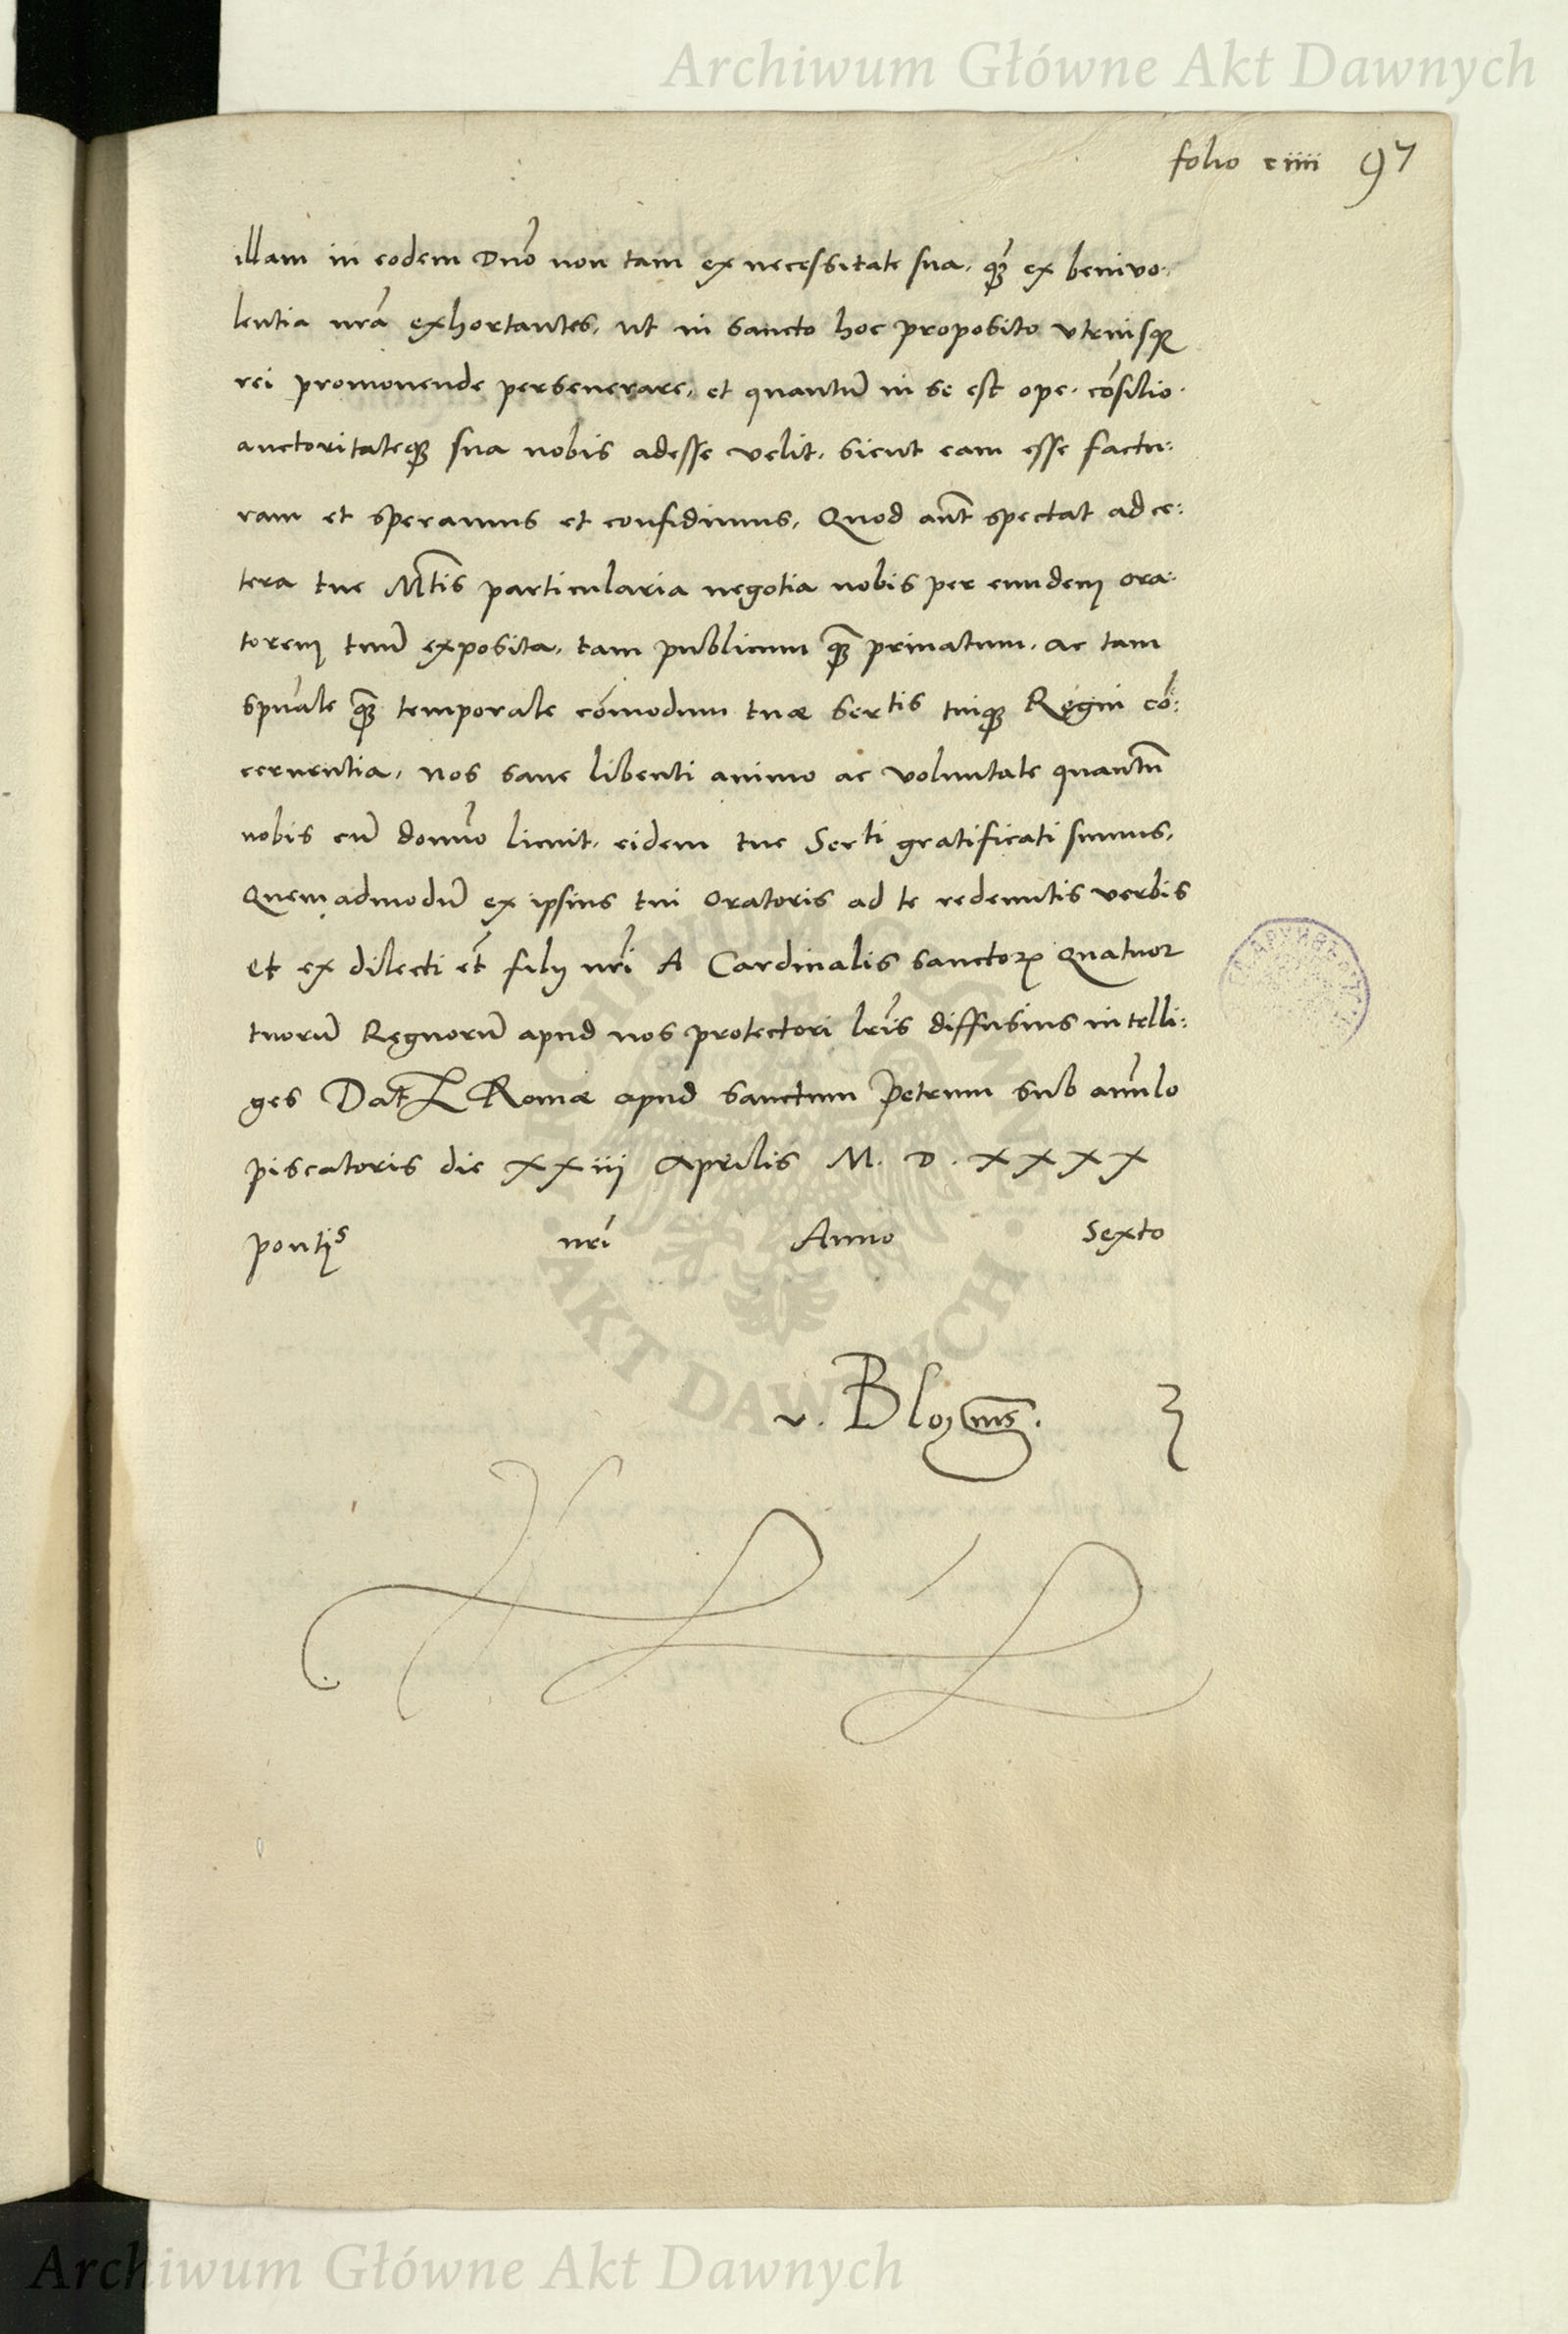 Archiwum Główne Akt Dawnych
folio ciiii 97
illam in eodem Dnō non tam ex necessitate sua, quā ex benivo-
lentia nrā exhortantes, ut in sancto hoc proposito utriusque
rei promouende perseuerare, et quantū in se est ope, cōsilio,
auctoritateque sua nobis adesse velit, sicut eam esse factu:
ram et speramus et confidimus, Quod aūt spectat ad ce:
tera tue Mtis particularia negotia nobis per eundem ora-
torem tuū exposita, tam publicum quā priuatum, ac tam
spūale quā temporale cōmodum tuæ Sertis tuique Regni cō:
cernentia, nos sane libenti animo ac voluntate quantū
nobis cū domīo licuit, eidem tue Serti gratificati sumus,
Quemadmodū ex ipsius tui oratoris ad te redeuntis verbis
et ex dilecti et̄ filij nrī A Cardinalis sanctorꝝ Quatuor
tuorū Regnorū apud nos protectori lrīs diffusius intelli:
ges Dat Romæ apud sanctum Petrum sub anulo
piscatoris die xxiij Aprilis M. D. XXXX
pontis nrī Anno Sexto
v. Blosius.
ARCHIWUM GŁÓWNE
AKT DAWNYCH
Archiwum Główne Akt Dawnych